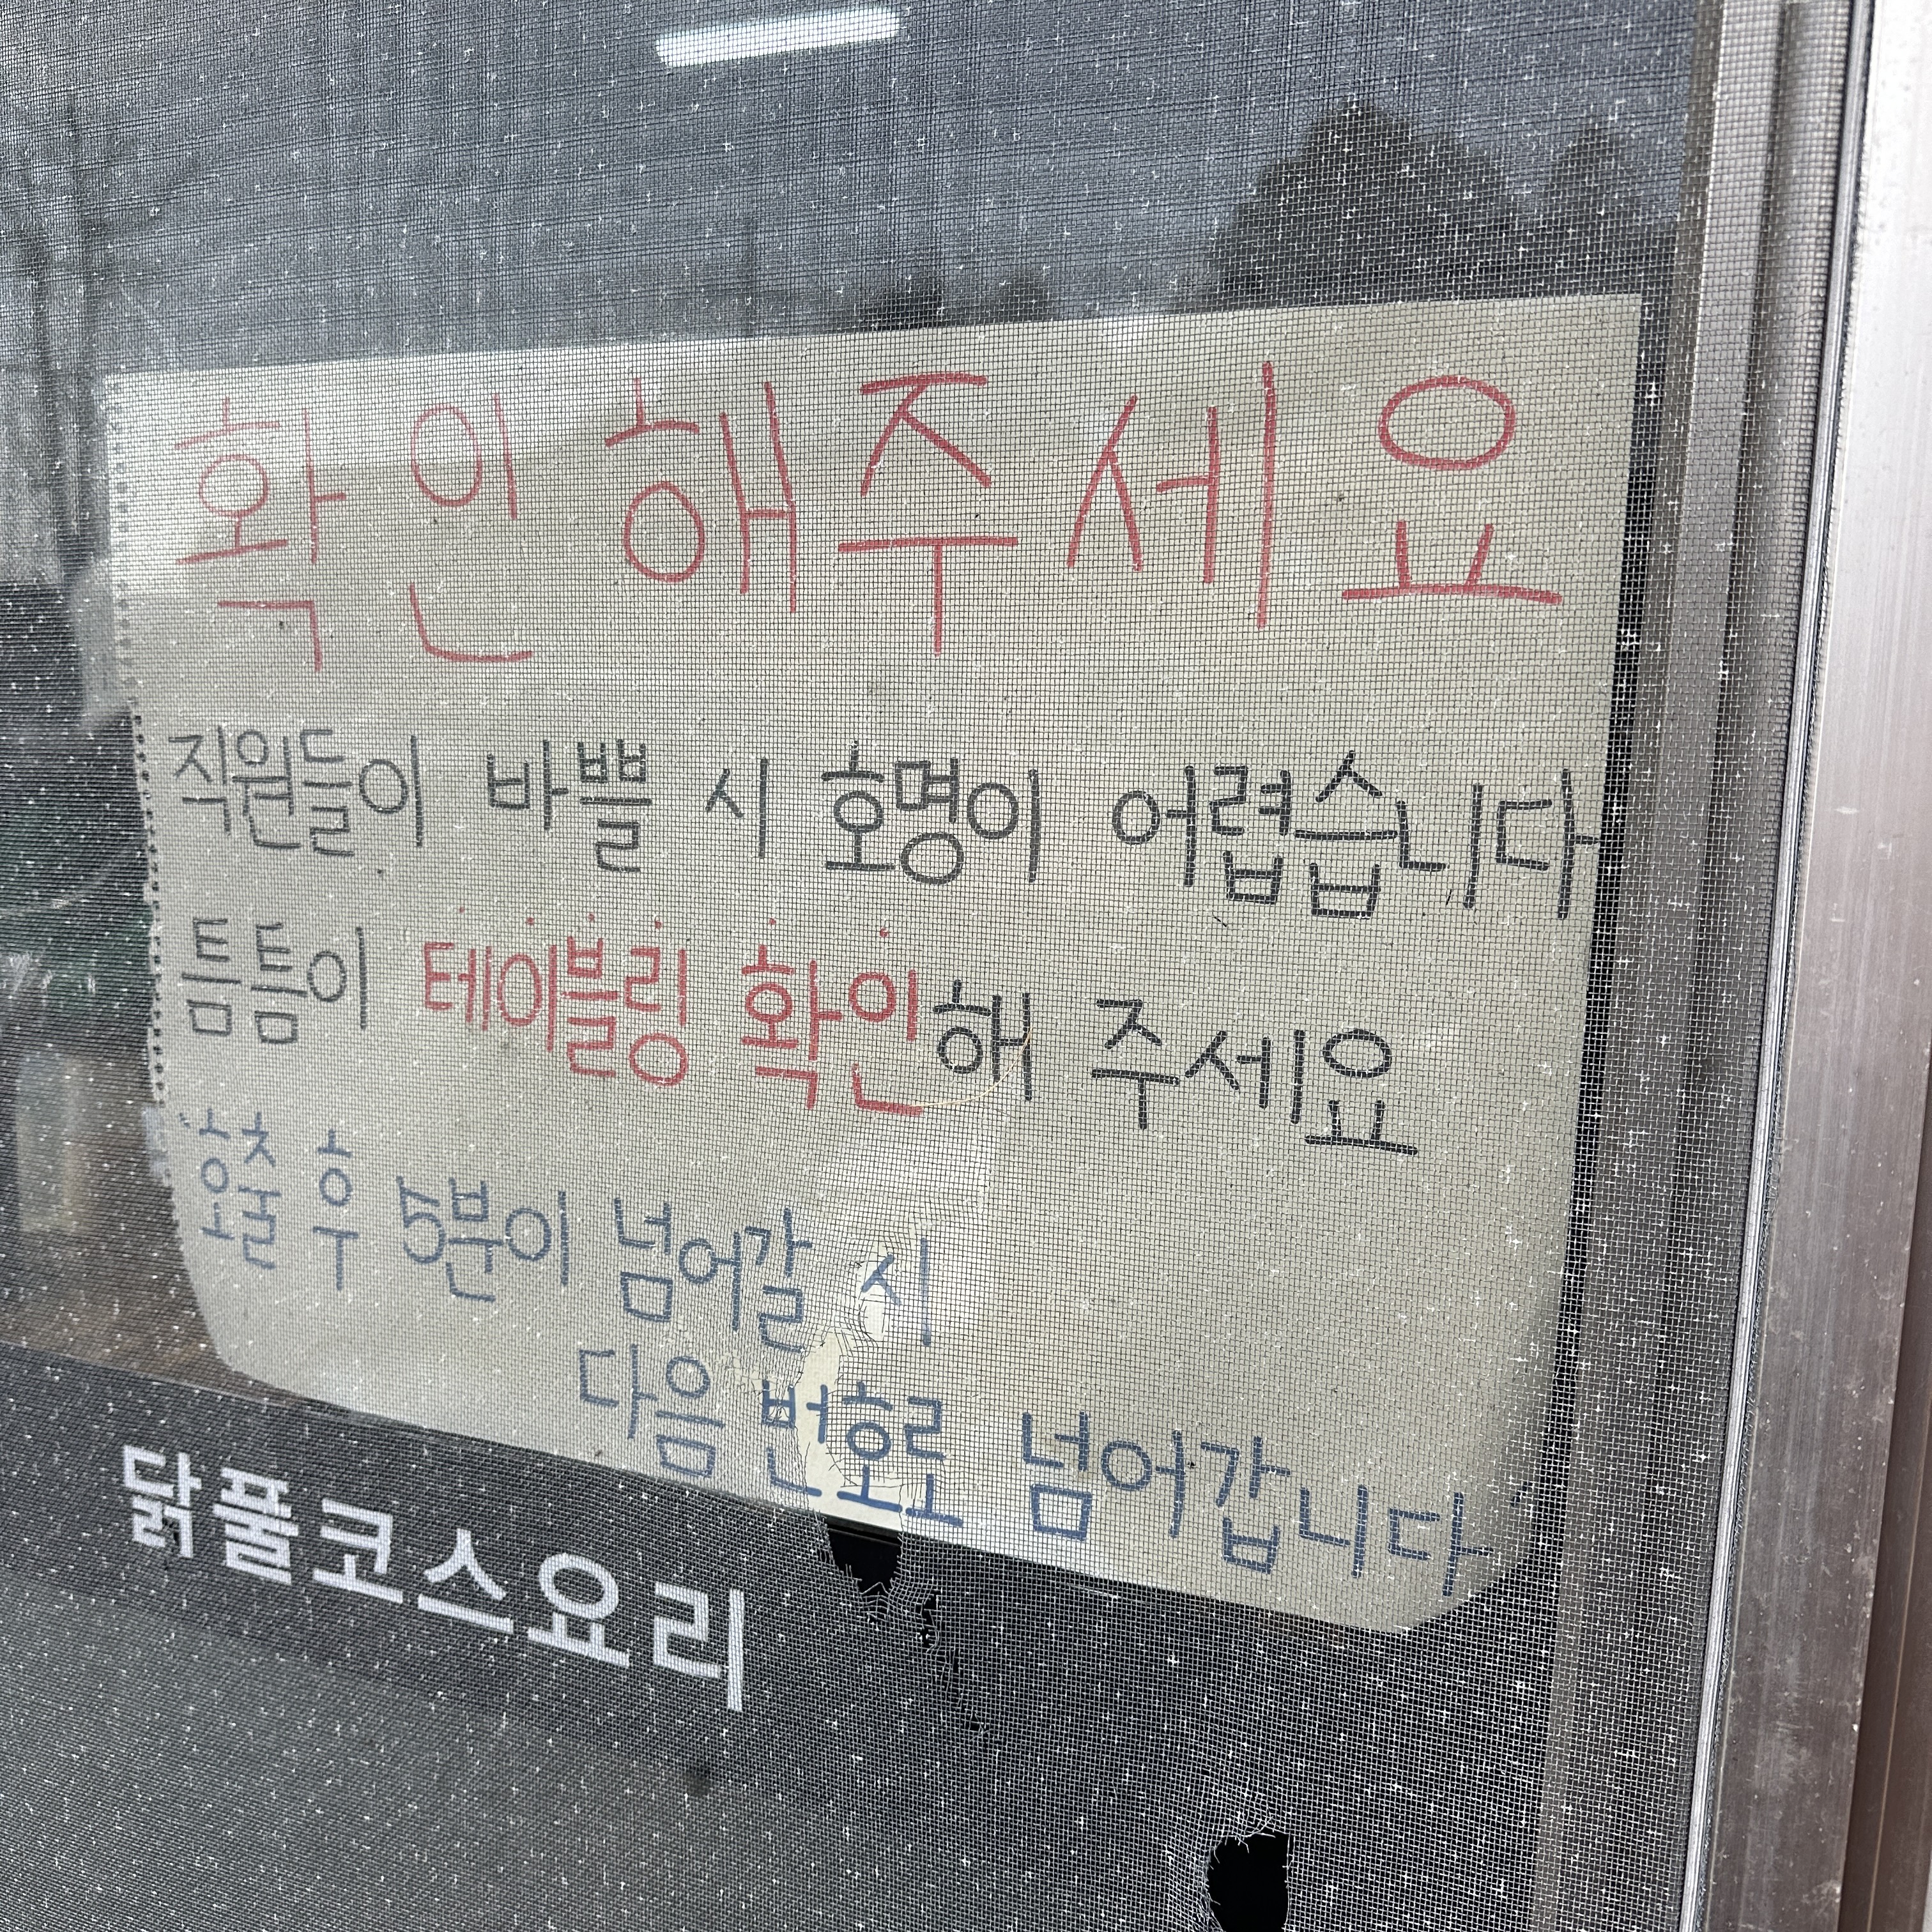 확인해주세요
직원들이 바쁠 시 호명이 어렵습니다
틈틈이 테이블링 확인해 주세요
호출 후 5분이 넘어갈 시
다음 번호로 넘어갑니다
닭풀코스요리